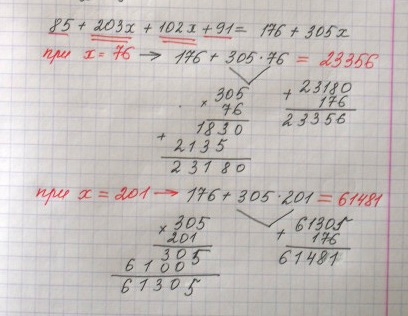 85 + 203x + 102x + 91 = 176 + 305x
при x = 76 → 176 + 305 · 76 = 23356
× 305
76
+ 1830
2135
23180
+ 23180
176
23356
при x = 201 → 176 + 305 · 201 = 61481
× 305
201
305
6100
61305
+ 61305
176
61481